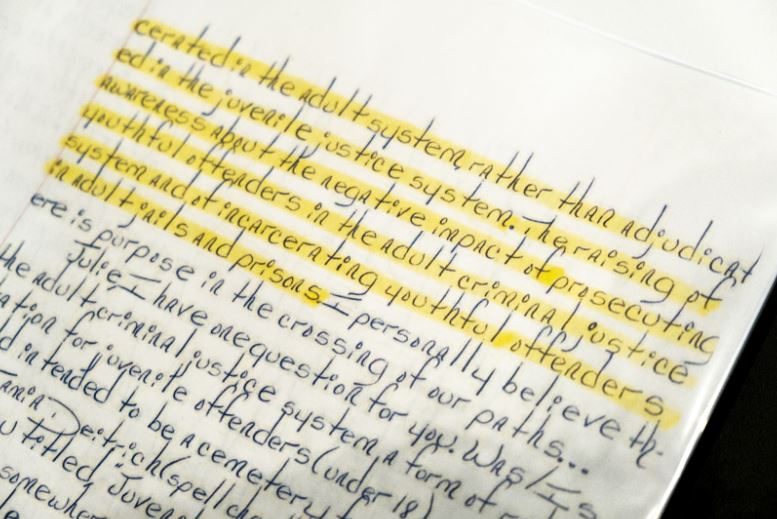 cerated in the adult system, rather than adjudicat
ed in the juvenile justice system. The raising of
awareness about the negative impact of prosecuting
youthful offenders in the adult criminal justice
system and of incarcerating youthful offenders
in adult jails and prisons. I personally believe th-
ere is purpose in the crossing of our paths...
Julie I have one question for you. Was/Is
the adult criminal justice system, a form of
ation for juvenile offenders (under 18)
d intended to be a cemetery
Deitrich (spell che
u titled, "Juven
somewher